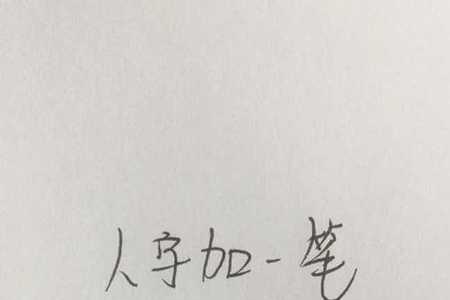 人字加一笔